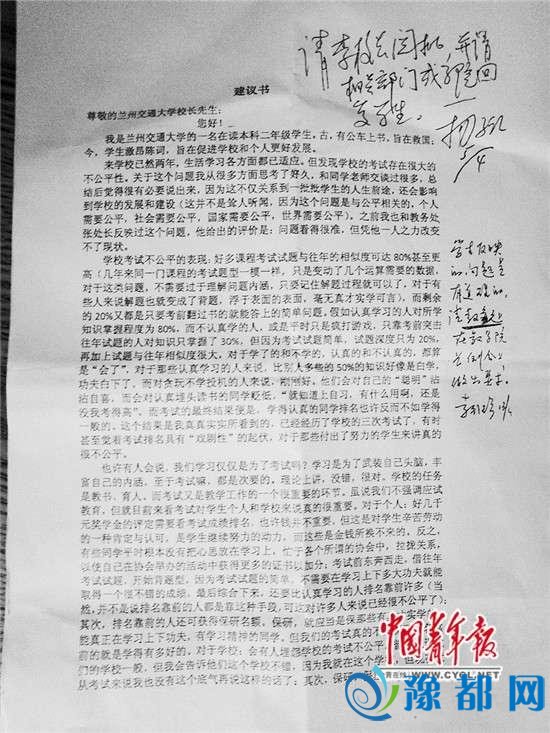 请李校长阅批，并请
相关部门或
学生。
5/4
建议书
尊敬的兰州交通大学校长先生：
您好！
我是兰州交通大学的一名在读本科二年级学生。古，有公车上书，旨在救国；
今，学生激昂陈词，旨在促进学校和个人更好发展。
来学校已然两年，生活学习各方面都已适应。但发现学校的考试存在很大的
不公平性。关于这个问题我从很多方面思考了好久，和同学老师交谈过很多，总
结后觉得很有必要说出来，因为这不仅关系到一批批学生的人生前途，还会影响
到学校的发展和建设（这并不是耸人听闻，因为这个问题是与公平相关的，个人
需要公平，社会需要公平，国家需要公平，世界需要公平）。之前我也和教务处
张处长反映过这个问题，他给出的评价是：问题看得很准，但凭他一人之力改变
不了现状。
学校考试不公平的表现：好多课程考试试题与往年的相似度可达 80%甚至更
高（几年来同一门课程的考试题型一模一样，只是变动了几个运算需要的数据，
对于这类问题，不需要过于理解问题内涵，只要记住解题过程就可以了，对于有
些人来说解题也就变成了背题，浮于表面的表面，毫无真才实学可言），而剩余
的 20%又都是只要考前翻过书的就能答上的简单问题，假如认真学习的人对所学
知识掌握程度为 80%，而不认真学的人，或是平时只是疯打游戏，只靠考前突击
往年试题的人对知识只掌握了 30%，但因为考试试题简单，试题深度只为 20%，
再加上试题与往年相似度很大，对于学了的和不学的，认真的和不认真的，都算
是“会了”，对于那些认真学习的人来说，比别人多些的 50%的知识好像是白学，
功夫白下了，而对贪玩不学投机的人来说，刚刚好，他们会对自己的“聪明”沾
沾自喜，而会对认真埋头读书的同学贬低，“就知道上自习，有什么用啊，还是
没我考得高”，而考试的最终结果便是，学得认真的同学排名也许反而不如学得
一般的。这个结果是我真真实实所看到的，已经经历了学校的三次考试了，有时
甚至觉着考试排名具有“戏剧性”的起伏，对于那些付出了努力的学生来讲真的
很不公平。
也许有人会说，我们学习仅仅是为了考试吗？学习是为了武装自己头脑，丰
富自己的内涵，至于考试嘛，都是次要的。理论上讲，没错，很对。学校的任务
是教书、育人。而考试又是教学工作的一个很重要的环节。虽说我们不强调应试
教育，但就目前来看考试对学生个人和学校来说真的很重要。对于个人：好几千
元奖学金的评定需要看考试成绩排名，也许钱并不重要，但这是对学生辛苦劳动
的一种肯定与认可，是学生继续努力的动力，而这些是金钱所换不来的。反之，
有些同学平时根本没有把心思放在学习上，忙于各个所谓的协会中，拉拢关系，
以使自己在协会举办的活动中获得更多的证书以加分；考试前东奔西走，借往年
考试试题，开始背题型，因为考试试题的简单，不需要在学习上下多大功夫就能
取得一个很不错的成绩，最后综合下来，还要比认真学习的人排名靠前许多（当
然，并不是说排名靠前的人都是靠这种手段，可这对许多人来说已经很不公平了）；
其次，排名靠前的人还可获得保研名额，保研，就应当是保那些有
能真正在学习上下功夫，有学习精神的同学，但我们的考试真的
前的就是学得有多好的。对于学校：会有人埋怨学校的考试不公平
们的学校一般，但我会告诉他们这个学校不错，因为我就在这个学
从考试来说我也没有这个底气再说这样的话了；其次，保研
学生反映
的问题是
有道理的，
请教务处
在教学院
长例会上
做出要求。
中国青年报
中青在线
WWW.CYOL.NET
豫都网